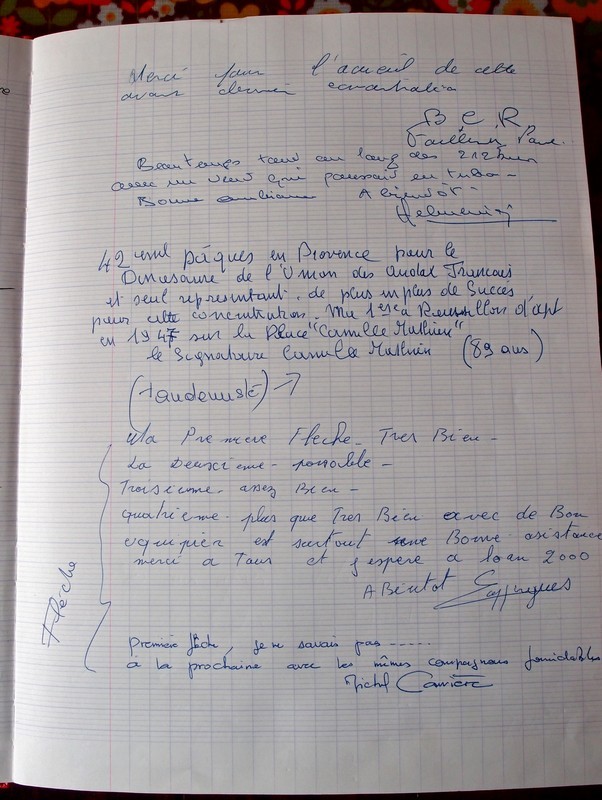 Merci pour l'acueil de cette
avant dernier concentration
B C R
Paul
Beau temps tout au long des 212 km
avec un vent qui poussait en turbo -
Bonne ambiance A bientôt -
42 eme Pâques en Provence pour le
Dinosaure de l'Union des Audax Francais
et seul représentant. de plus en plus de Succès
pour cette concentration. Ma 1ère à Roussillon d'apt
en 1947 sur la Place "Camille Mathieu"
le Signataire Camille Mathieu (89 ans)
(tandemiste)
Ma Premiere Fleche Tres Bien -
La Deuxieme - possible -
Troisieme - assez Bien -
quatrieme - plus que Tres Bien avec de Bon
equipier et surtout une Bonne asistance
merci a Tous et j'espere a l'oan 2000
A Bientot
Flèche
Première flèche, je ne savais pas -----
à la prochaine avec les mêmes compagnons formidables
Michel Carrière